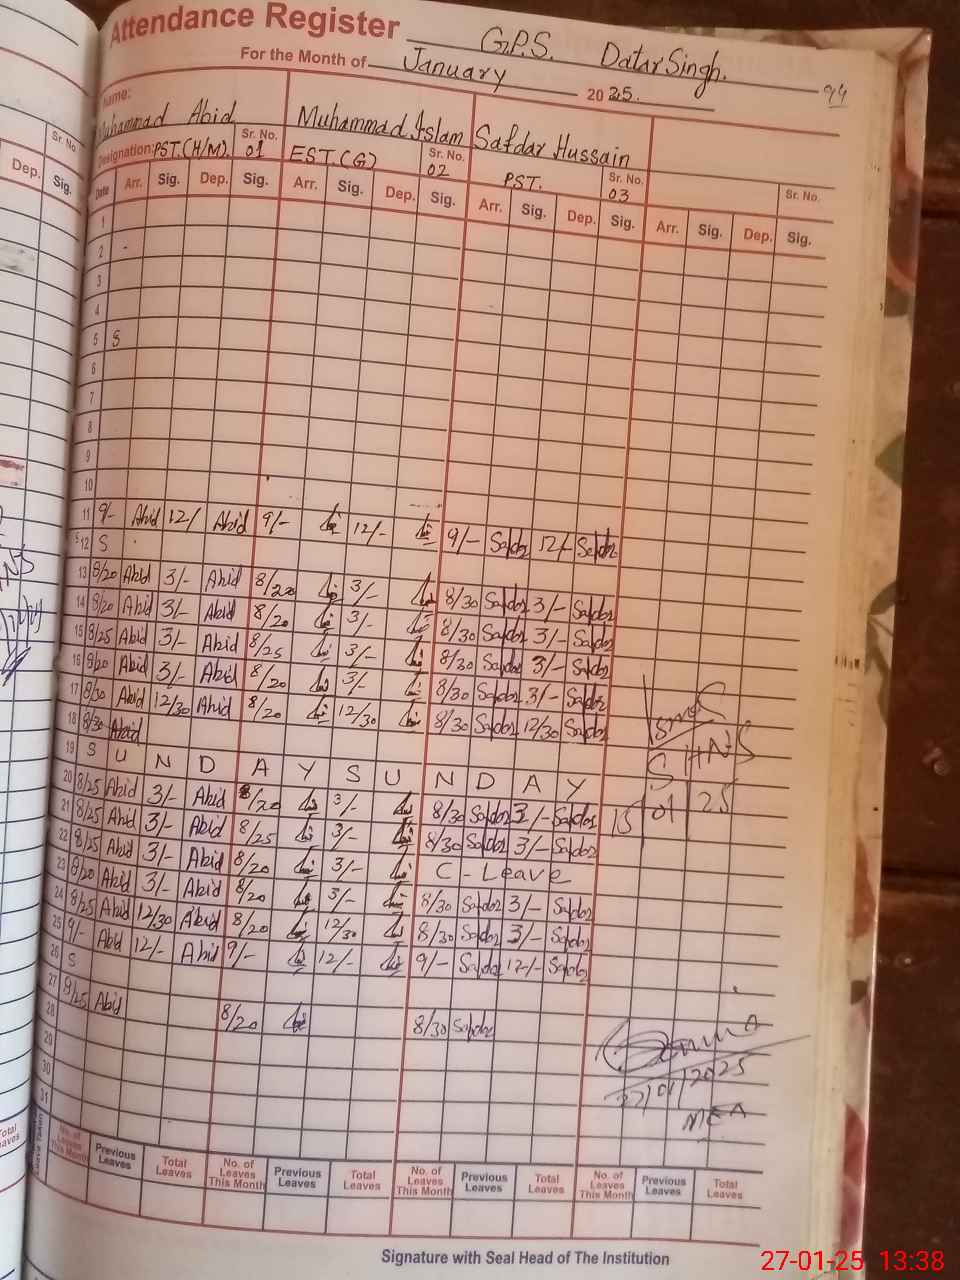 Attendance Register G.P.S. Datar Singh.
For the Month of January 2025. 94
Name:
Muhammad Abid Muhammad Islam Safdar Hussain
Designation: PST.(H/M). Sr. No. 01 EST.(G) Sr. No. 02 PST. Sr. No. 03 Sr. No.
Date Arr. Sig. Dep. Sig. Arr. Sig. Dep. Sig. Arr. Sig. Dep. Sig. Arr. Sig. Dep. Sig.
1
2
3
4
5 S
6
7
8
9
10
11 9/- Abid 12/- Abid 9/- 12/- 9/- Safdar 12/- Safdar
12 S
13 8/20 Abid 3/- Abid 8/20 3/- 8/30 Safdar 3/- Safdar
14 8/20 Abid 3/- Abid 8/20 3/- 8/30 Safdar 3/- Safdar
15 8/25 Abid 3/- Abid 8/25 3/- 8/30 Safdar 3/- Safdar
16 8/20 Abid 3/- Abid 8/20 3/- 8/30 Safdar 3/- Safdar
17 8/30 Abid 12/30 Abid 8/20 12/30 8/30 Safdar 12/30 Safdar
18 8/30 Abid
19 S U N D A Y S U N D A Y
20 8/25 Abid 3/- Abid 8/20 3/- 8/30 Safdar 3/- Safdar
21 8/25 Abid 3/- Abid 8/25 3/- 8/30 Safdar 3/- Safdar
22 8/25 Abid 3/- Abid 8/20 3/- C - Leave
23 8/20 Abid 3/- Abid 8/20 3/- 8/30 Safdar 3/- Safdar
24 8/25 Abid 12/30 Abid 8/20 12/30 8/30 Safdar 3/- Safdar
25 9/- Abid 12/- Abid 9/- 12/- 9/- Safdar 12/- Safdar
26 S
27 8/25 Abid 8/20 8/30 Safdar
28
29
30
31
15 01 25
27/01/2025
MEA
Leave Taken No. of Leaves This Month Previous Leaves Total Leaves No. of Leaves This Month Previous Leaves Total Leaves No. of Leaves This Month Previous Leaves Total Leaves No. of Leaves This Month Previous Leaves Total Leaves
Signature with Seal Head of The Institution
Sr. No
Dep. Sig.
27-01-25 13:38